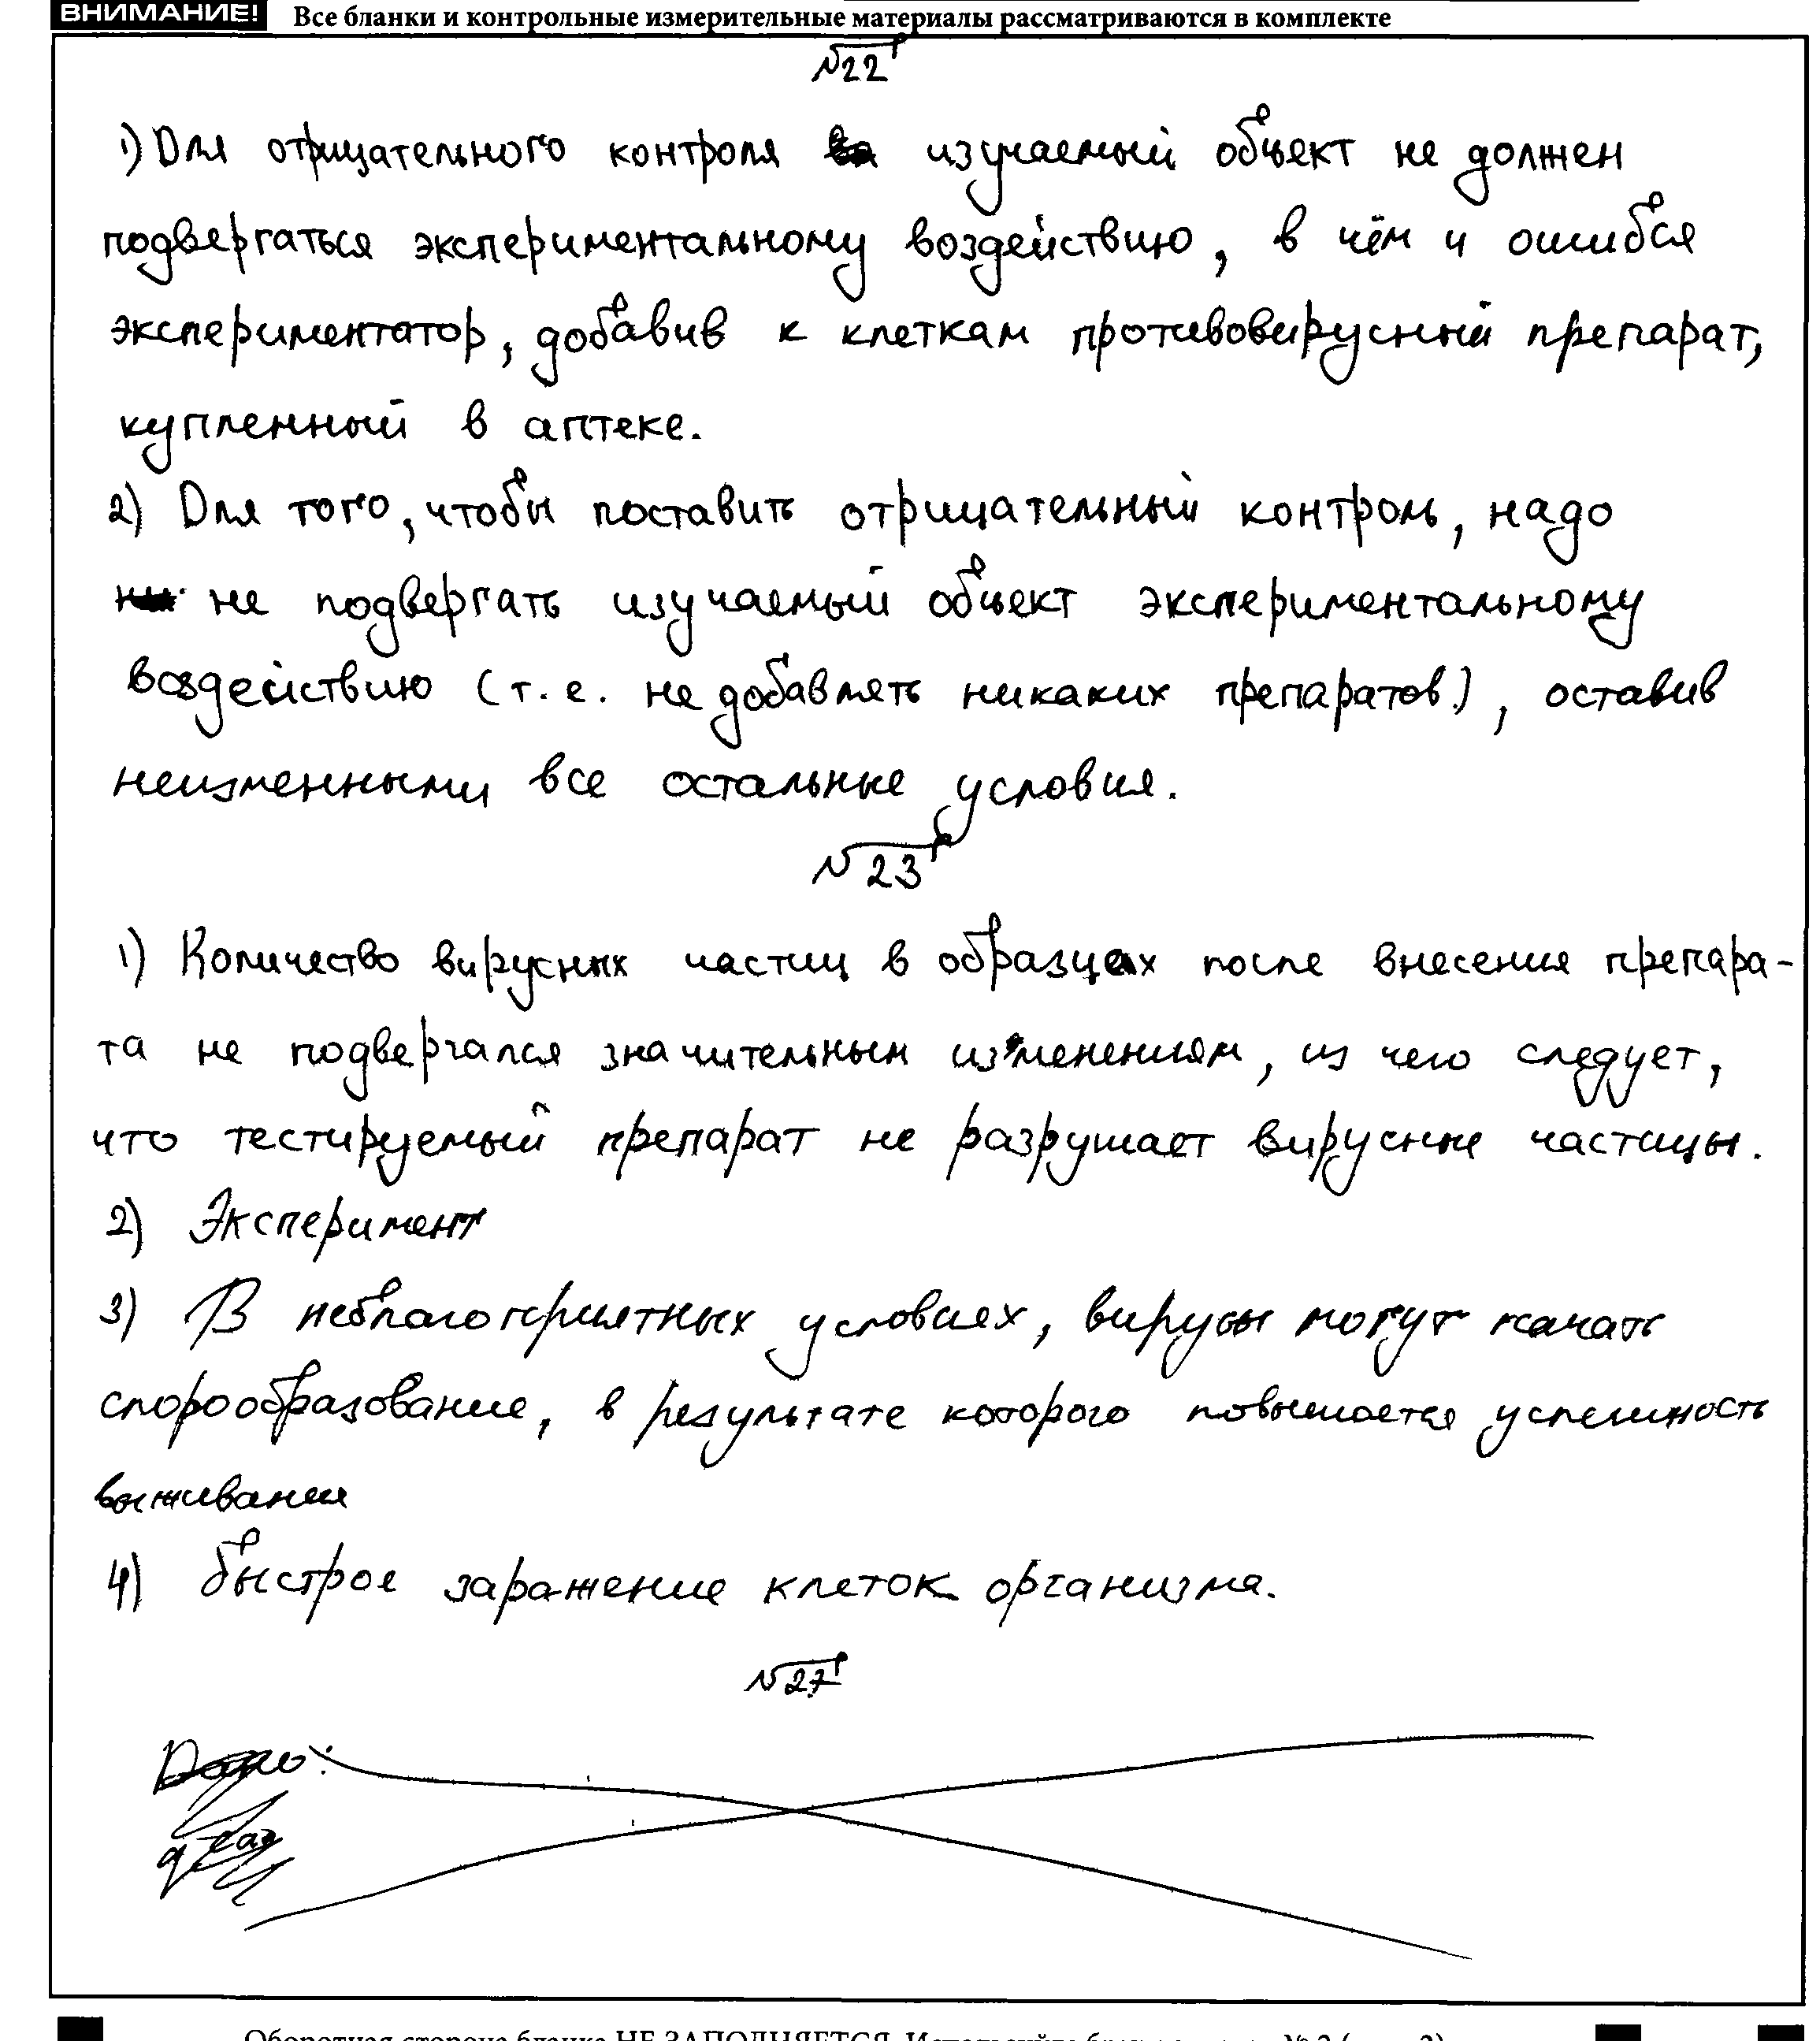 ВНИМАНИЕ! Все бланки и контрольные измерительные материалы рассматриваются в комплекте
№22
1) Для отрицательного контроля изучаемый объект не должен
подвергаться экспериментальному воздействию, в чём и ошибся
экспериментатор, добавив к клеткам противовирусный препарат,
купленный в аптеке.
2) Для того, чтобы поставить отрицательный контроль, надо
не подвергать изучаемый объект экспериментальному
воздействию (т.е. не добавлять никаких препаратов), оставив
неизменными все остальные условия.
№23
1) Количество вирусных частиц в образцах после внесения препара-
та не подвергался значительным изменениям, из чего следует,
что тестируемый препарат не разрушает вирусные частицы.
2) Эксперимент
3) В неблагоприятных условиях, вирусы могут начать
спорообразование, в результате которого повышается успешность
выживания
4) быстрое заражение клеток организма.
№27
Дано: